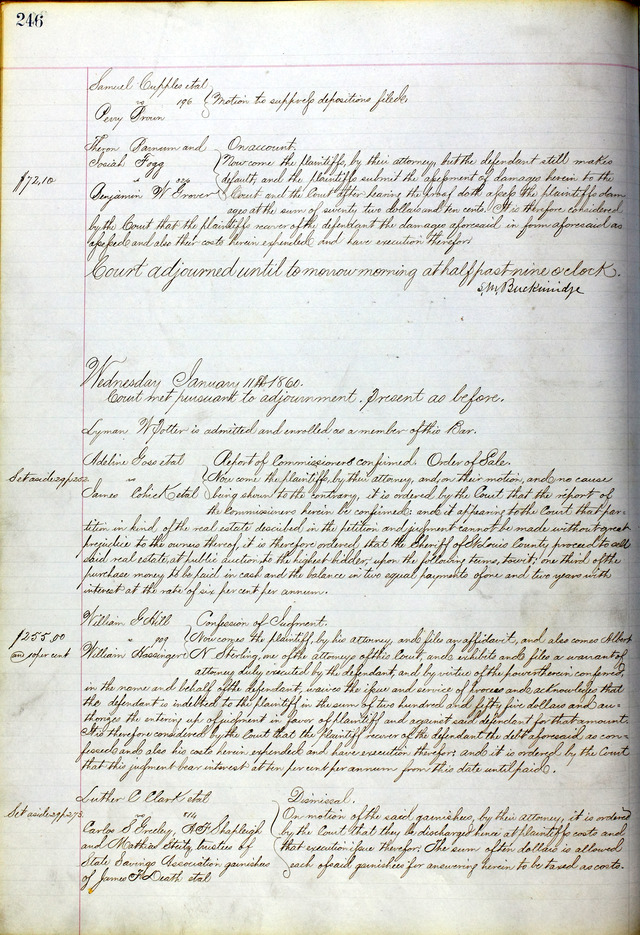 246
Samuel Cupples et al
vs 196 Motion to suppress depositions filed.
Perry Brown
Theron Barnum and On account.
Josiah Fogg Now come the plaintiffs, by their attorney, but the defendant still makes
$72,10 vs default, and the plaintiffs submit the assessment of damages herein to the
Benjamin W Grover Court and the Court after hearing the proof doth assess the plaintiffs dam-
ages at the sum of seventy two dollars and ten cents. It is therefore considered
by the Court that the plaintiffs recover of the defendant the damages aforesaid in form aforesaid as
assessed and also their costs herein expended and have execution therefor.
Court adjourned until tomorrow morning at half past nine o'clock.
S, M, Buckinridge
Wednesday January 11th 1860.
Court met pursuant to adjournment. Present as before.
Lyman W Potter is admitted and enrolled as a member of this Bar.
Adeline Goss et al Report of Commissioners confirmed. Order of Sale.
Set aside 29/ vs Now come the plaintiffs, by their attorney, and, on their motion, and no cause
James et al being shown to the contrary, it is ordered by the Court that the report of
the Commissioners herein be confirmed: and it appearing to the Court that par-
tition in kind, of the real estate described in the petition and judgment cannot be made without great
prejudice to the owners thereof, it is therefore ordered, that the Sheriff of St Louis County, proceed to sell
said real estate, at public auction, to the highest bidder, upon the following terms, towit; one third of the
purchase money to be paid in cash and the balance in two equal payments of one and two years with
interest at the rate of six per cent per annum.
William G Hill Confession of Judgment.
$255,00 vs 909 Now comes the plaintiff, by his attorney, and files an affidavit, and also comes Albert
and 10 per cent William Hassinger N Sterling, one of the attorneys of this Court, and exhibits and files a warrant of
attorney duly executed by the defendant, and by virtue of the power therein conferred,
in the name and behalf of the defendant, waives the issue and service of process and acknowledges that
the defendant is indebted to the plaintiff in the sum of two hundred and fifty five dollars and au-
thorizes the entering up of judgment in favor of plaintiff and against said defendant for that amount.
It is therefore considered by the Court that the Plaintiff recover of the defendant the debt aforesaid as con-
fessed and also his costs herein expended and have execution therefor: and it is ordered by the Court
that this judgment bear interest at ten per cent per annum from this date until paid.
Luther C Clark et al Dismissal.
Set aside 29/273. vs 914 On motion of the said garnishees, by their attorney, it is ordered
Carlos S Greeley, A F Shapleigh by the Court that they be discharged hence at plaintiffs costs and
and Mathias Steitz trustees of that execution issue therefor: The sum of ten dollars is allowed
State Savings Association garnishees each of said garnishees for answering herein to be taxed as costs.
of James H Death et al